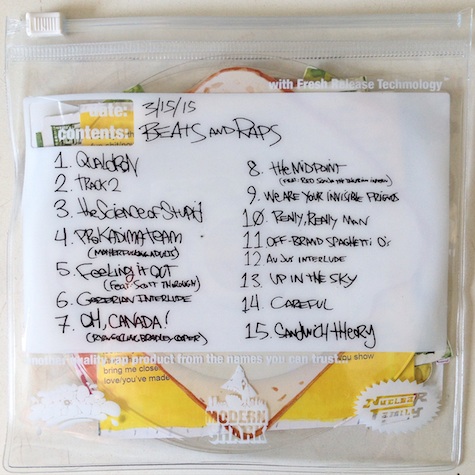 with Fresh Release Technology™
date: 3/15/15
contents: BEATS AND RAPS
1. QUALDRON
2. TRACK 2
3. the Science of Stupid
4. PROKADIMA TEAM
(MOTHERFUCKING ADULTS)
5. Feeling it OUT
(Feat. SCOTT THOROUGH)
6. INTERLUDE
7. OH, CANADA!
8. the MIDPOINT
(FEAT. RED
9. WE ARE YOUR INVISIBLE FRIENDS
10. REALLY, REALLY MAN
11 OFF-BRAND SPAGHETTI O's
12 AU JUS INTERLUDE
13. UP IN THE SKY
14. CAREFUL
15. SANDWICH THEORY
another quality rap product from the names you can trust
you show
bring me close
love/you've made
MODERN
SHARK
NUCLEAR
FAMILY